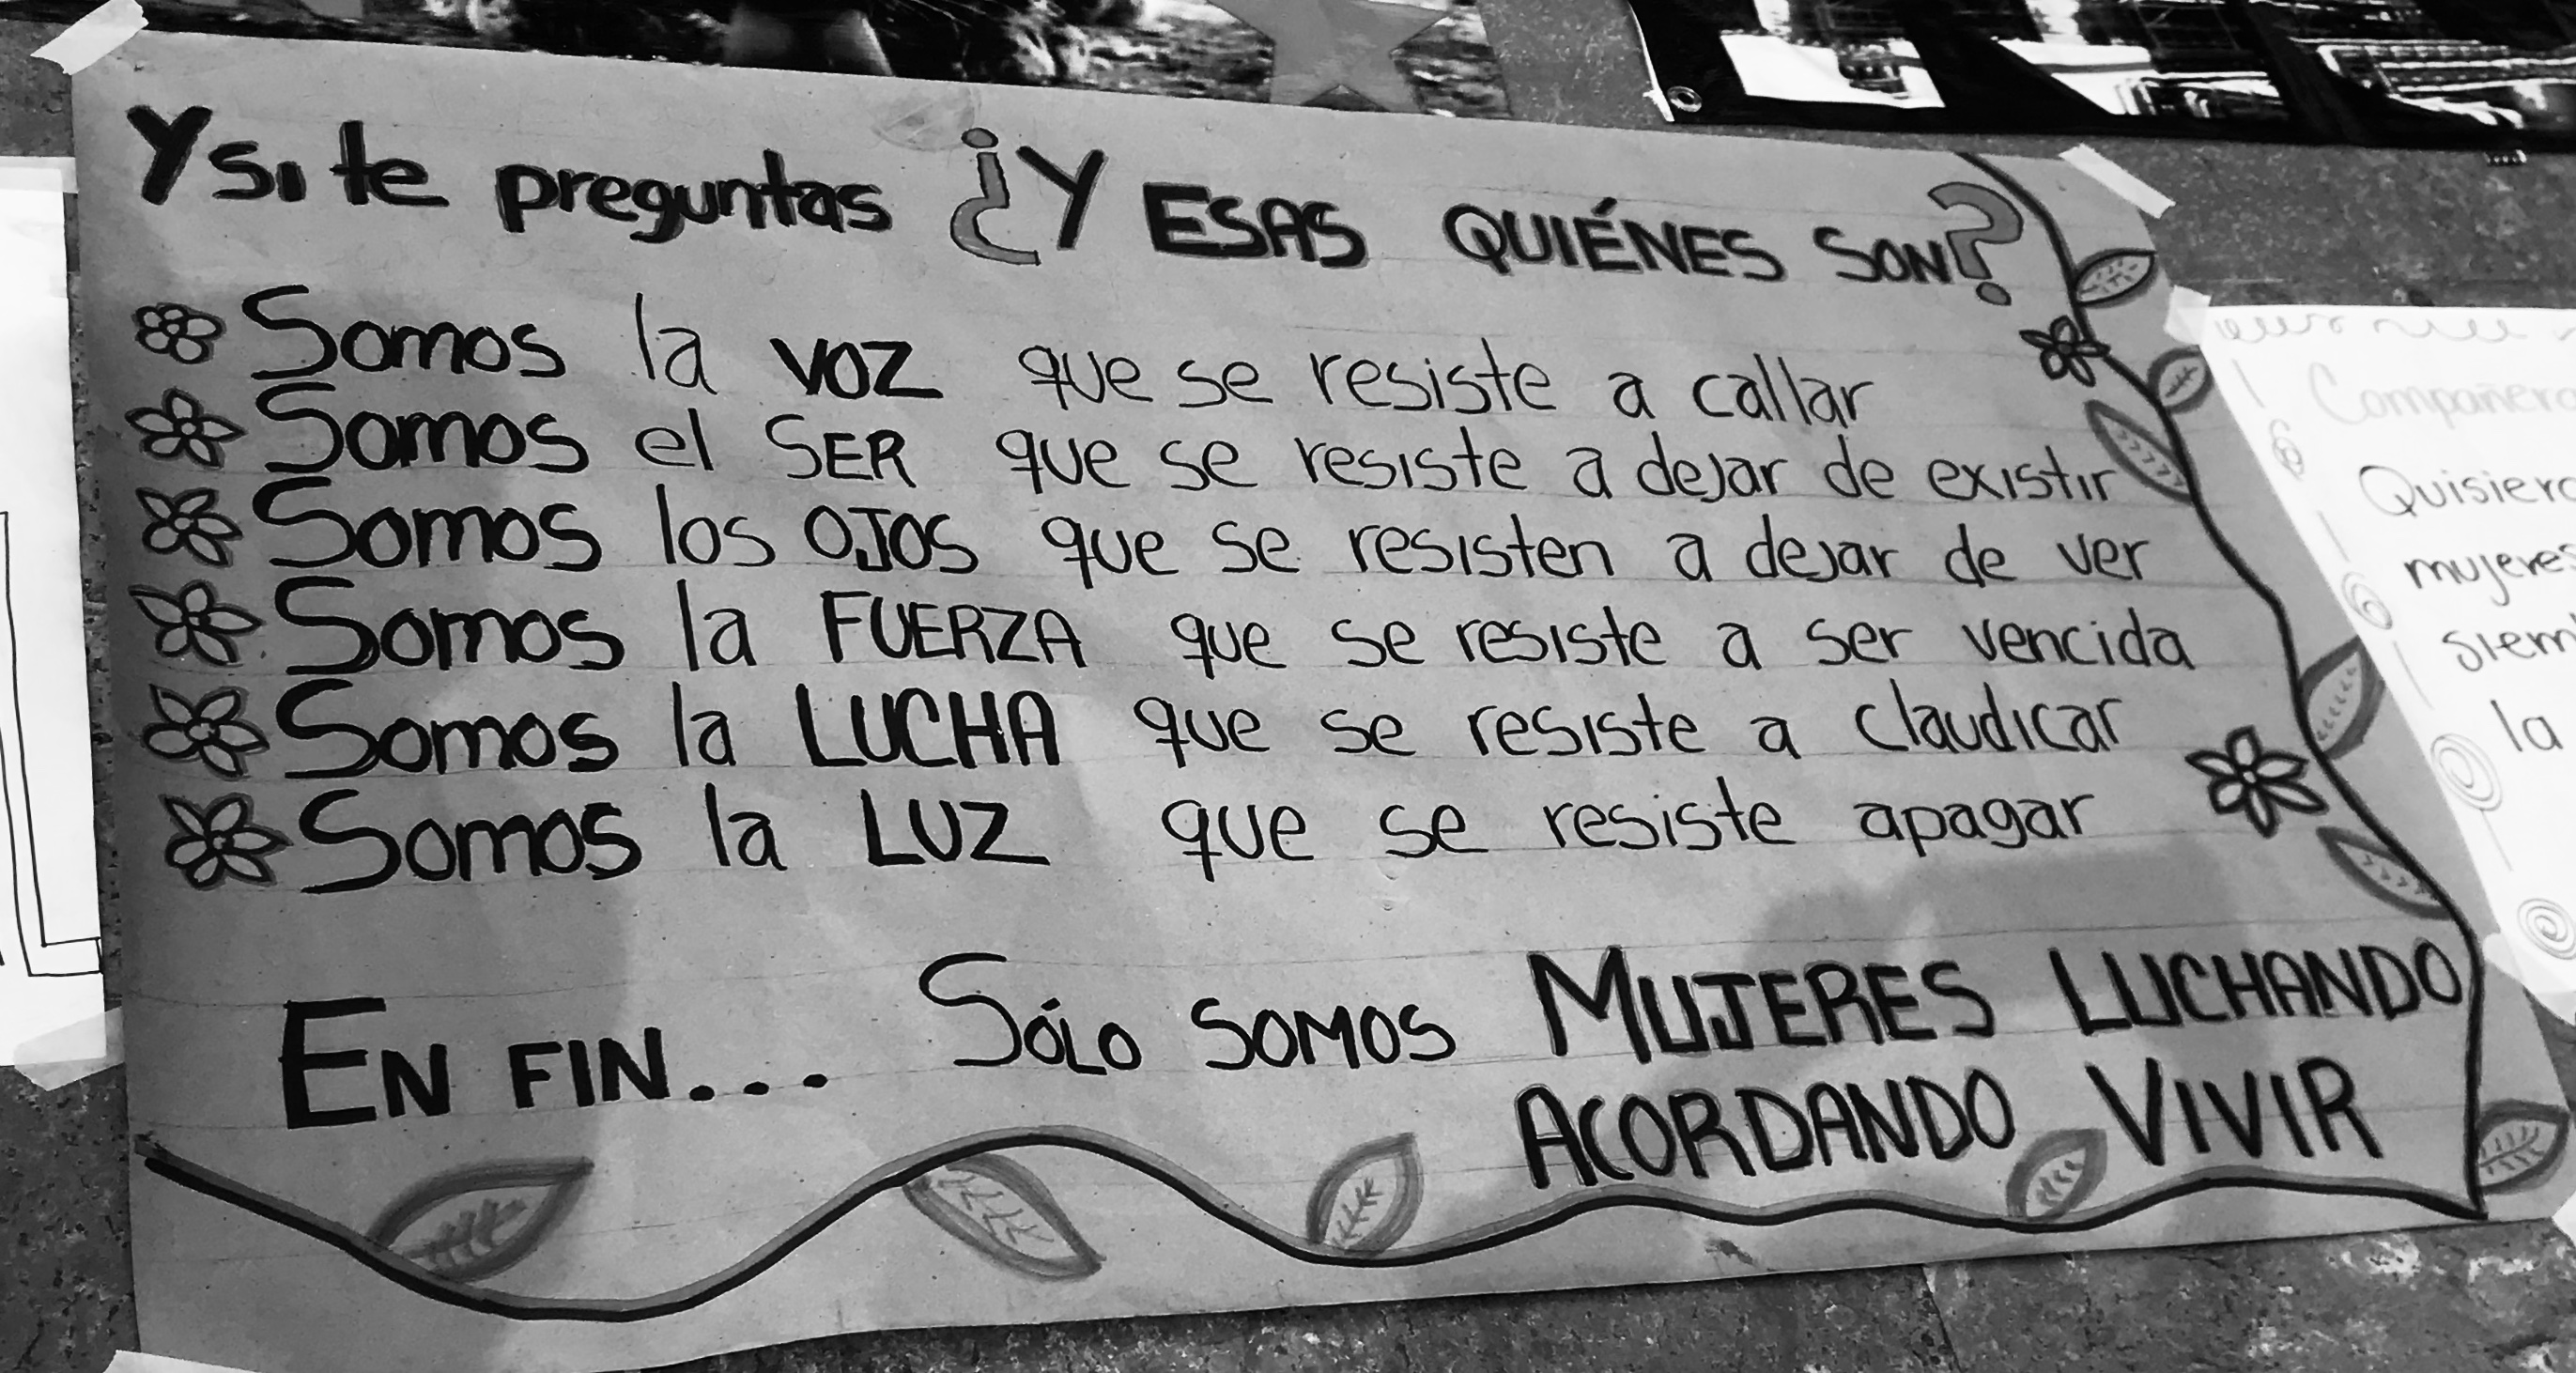 Y si te preguntas ¿Y ESAS QUIÉNES SON?
Somos la VOZ que se resiste a callar
Somos el SER que se resiste a dejar de existir
Somos los OJOS que se resisten a dejar de ver
Somos la FUERZA que se resiste a ser vencida
Somos la LUCHA que se resiste a claudicar
Somos la LUZ que se resiste apagar
EN FIN... SÓLO SOMOS MUJERES LUCHANDO
ACORDANDO VIVIR
mujeres
la